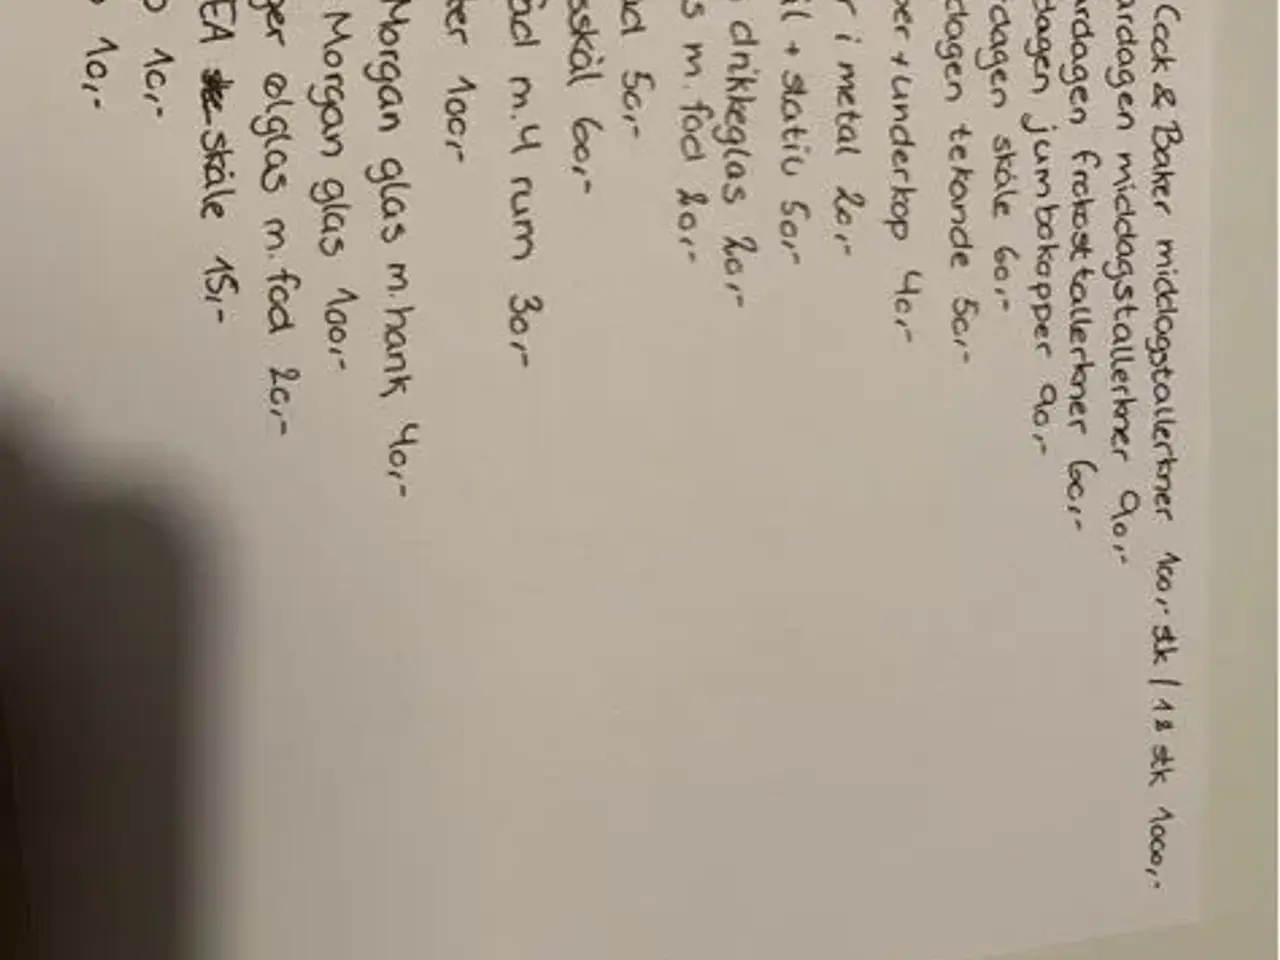 Cook & Baker middagstallerkner 100,- stk / 18 stk 1000,-
ardagen middagstallerkner 90,-
ardagen frokosttallerkner 60,-
dagen jumbokopper 90,-
dagen skåle 60,-
dagen tekande 50,-
per + underkop 40,-
r i metal 20,-
il + stativ 50,-
drikkeglas 20,-
s m. fod 20,-
ad 50,-
sskål 60,-
ad m. 4 rum 30,-
ter 100,-
Morgan glas m. hank 40,-
Morgan glas 100,-
ger ølglas m. fod 20,-
EA skåle 15,-
10,-
10,-